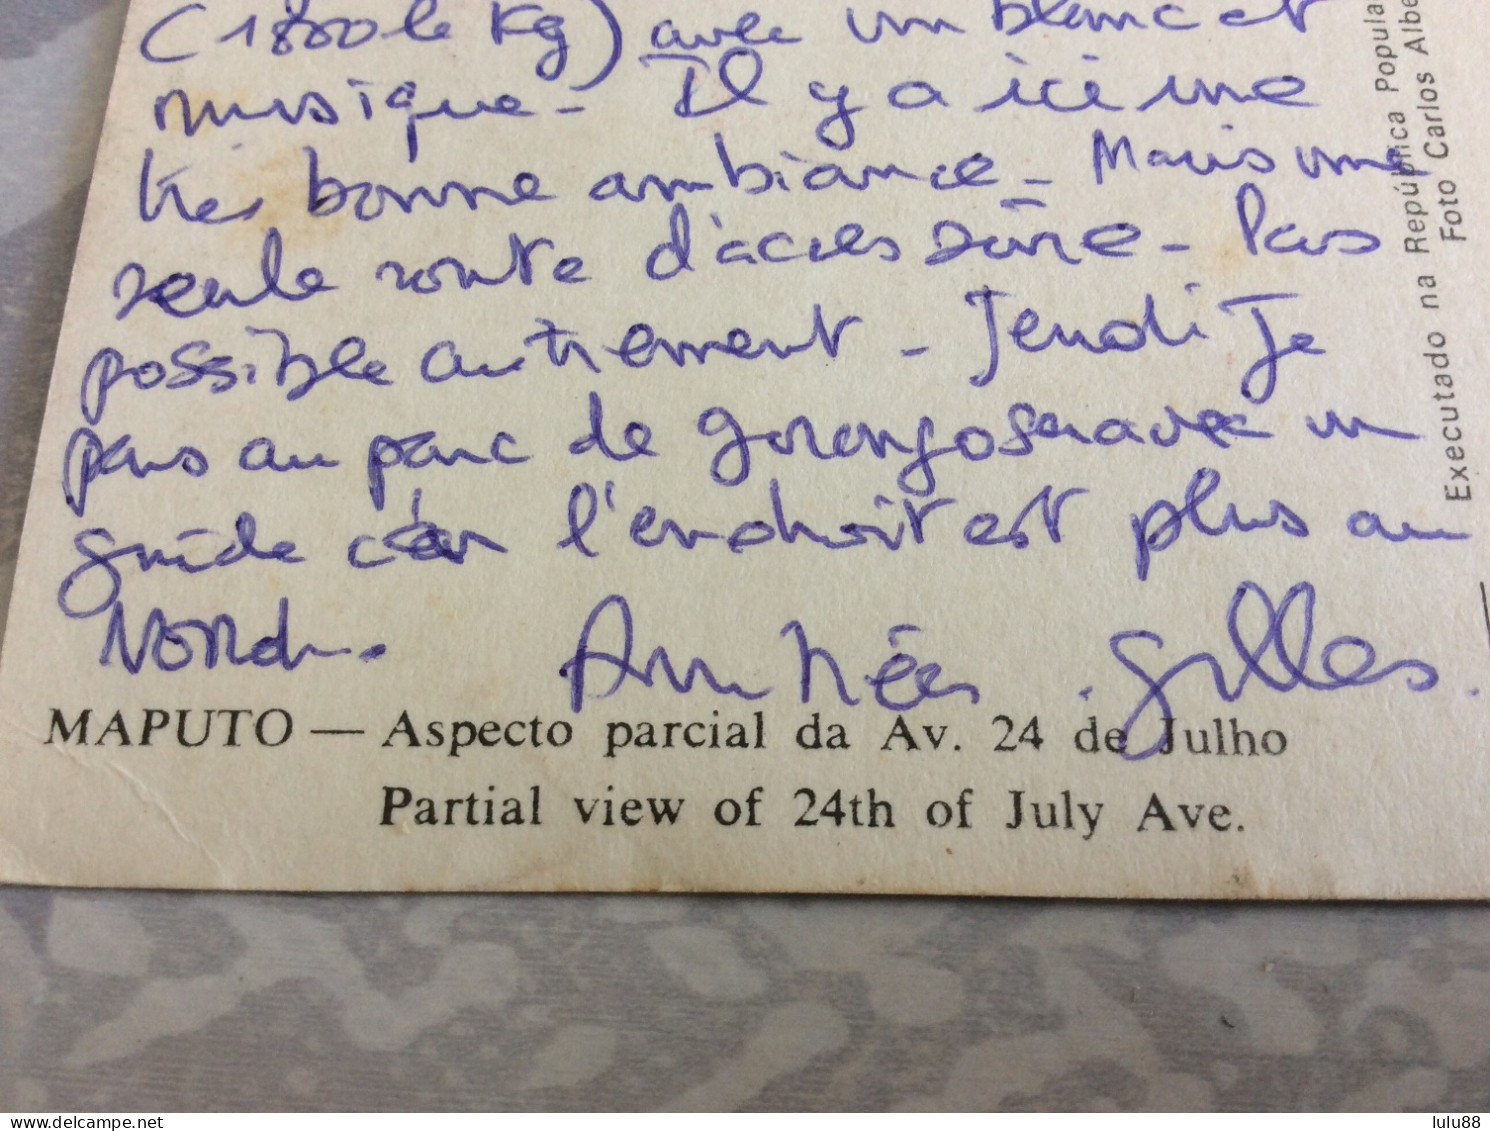 (1800 le Kg) avec un blanc et
musique - Il y a ici une
très bonne ambiance - Mais une
seule route d'accès sûre - Pas
possible autrement - Jeudi Je
pars au parc de gorongosa avec un
guide car l'endroit est plus au
Nord.
Amitiés. Gilles.
MAPUTO — Aspecto parcial da Av. 24 de Julho
Partial view of 24th of July Ave.
Executado na República Popula
Foto Carlos Albe
delcampe.net
lulu88